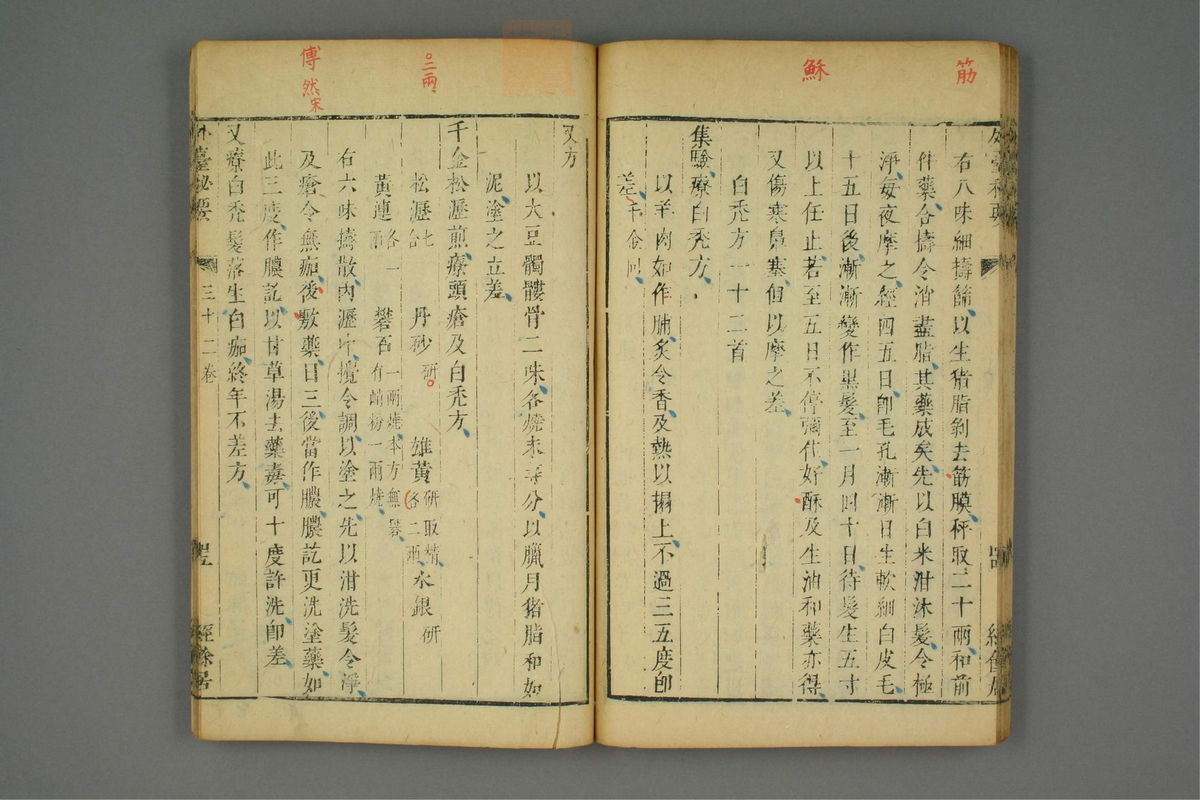 筋
穌
右八味細擣篩以生猪脂剝去筋膜秤取二十兩和前
件藥合擣令消盡脂其藥成矣先以白米泔沐髮令極
淨每夜摩之經四五日卽毛孔漸漸日生軟細白皮毛
十五日後漸漸變作黑髮至一月四十日待髮生五寸
以上任止若至五日不停彌佳好酥及生油和藥亦得
又傷寒鼻塞但以摩之差
白禿方一十二首
集驗療白禿方
以羊肉如作脯炙令香及熱以搨上不過三五度卽
差千金同
三兩
傅 然宋
又方
以大豆髑髏骨二味各燒末等分以臘月猪脂和如
泥塗之立差
千金松瀝煎療頭瘡及白禿方
松瀝七合 丹砂研 雄黃研取精各二兩 水銀研
黃連各一兩 礬石一兩燒本方無礬有峭粉一兩燒
右六味擣散內瀝中攪令調以塗之先以泔洗髮令淨
及瘡令無痂後敷藥日三後當作膿膿訖更洗塗藥如
此三度作膿訖以甘草湯去藥毒可十度許洗卽差
又療白禿髮落生白痂終年不差方
外臺秘要 三十二卷 經餘居